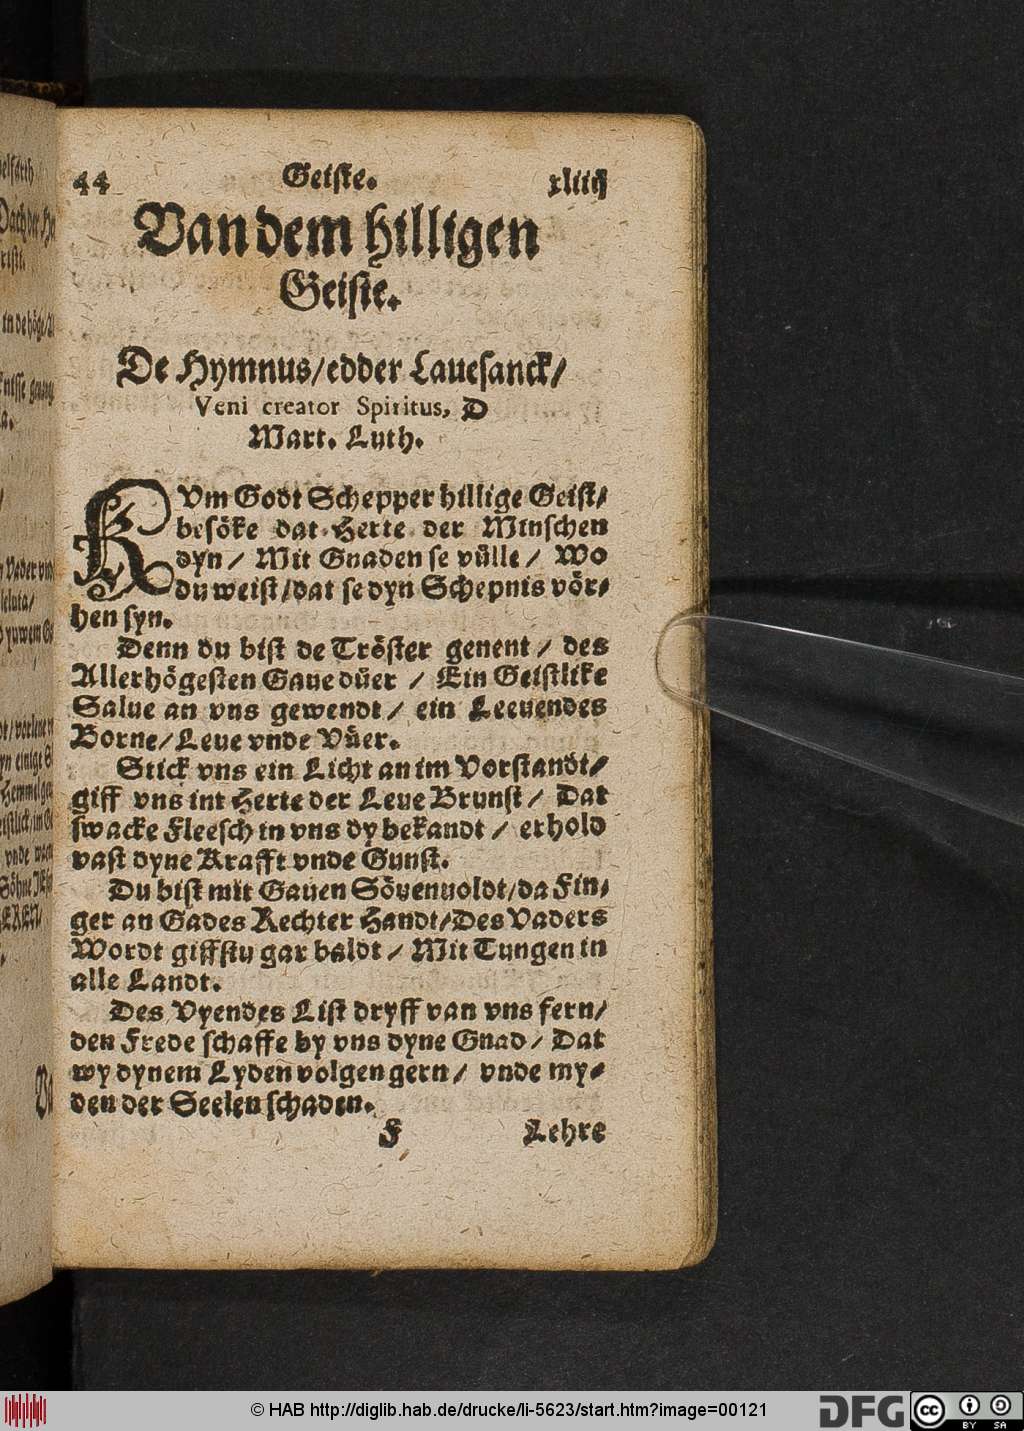 44 Geiste. xliiij
Van dem hilligen
Geiste.
De Hymnus/edder Lauesanck/
Veni creator Spiritus, D
Mart. Luth.
KVm Godt Schepper hillige Geist/
besöke dat Herte der Minschen
dyn / Mit Gnaden se vülle / Wo
du weist/dat se dyn Schepnis vör-
hen syn.
Denn du bist de Tröster genent / des
Allerhögesten Gaue düer / Ein Geistlike
Salue an vns gewendt / ein Leeuendes
Borne/Leue vnde Vüer.
Stick vns ein Licht an im Vorstandt/
giff vns int Herte der Leue Brunst / Dat
swacke Fleesch in vns dy bekandt / erhold
vast dyne Krafft vnde Gunst.
Du bist mit Gauen Söuenuoldt/da Fin-
ger an Gades Rechter Handt/Des Vaders
Wordt giffstu gar baldt / Mit Tungen in
alle Landt.
Des Vyendes List dryff van vns fern/
den Frede schaffe by vns dyne Gnad / Dat
wy dynem Lyden volgen gern / vnde my-
den der Seelen schaden.
F Lehre
© HAB http://diglib.hab.de/drucke/li-5623/start.htm?image=00121
DFG
cc BY SA